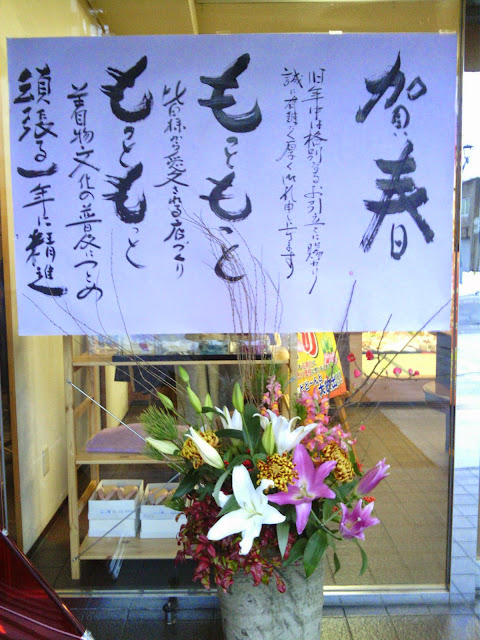 賀春
旧年中は格別なるお引立てに賜わり
誠に有難く厚く御礼申し上げます
もっともっと
皆様から愛される店づくり
もっともっと
着物文化の普及につとめ
頑張る一年に精進